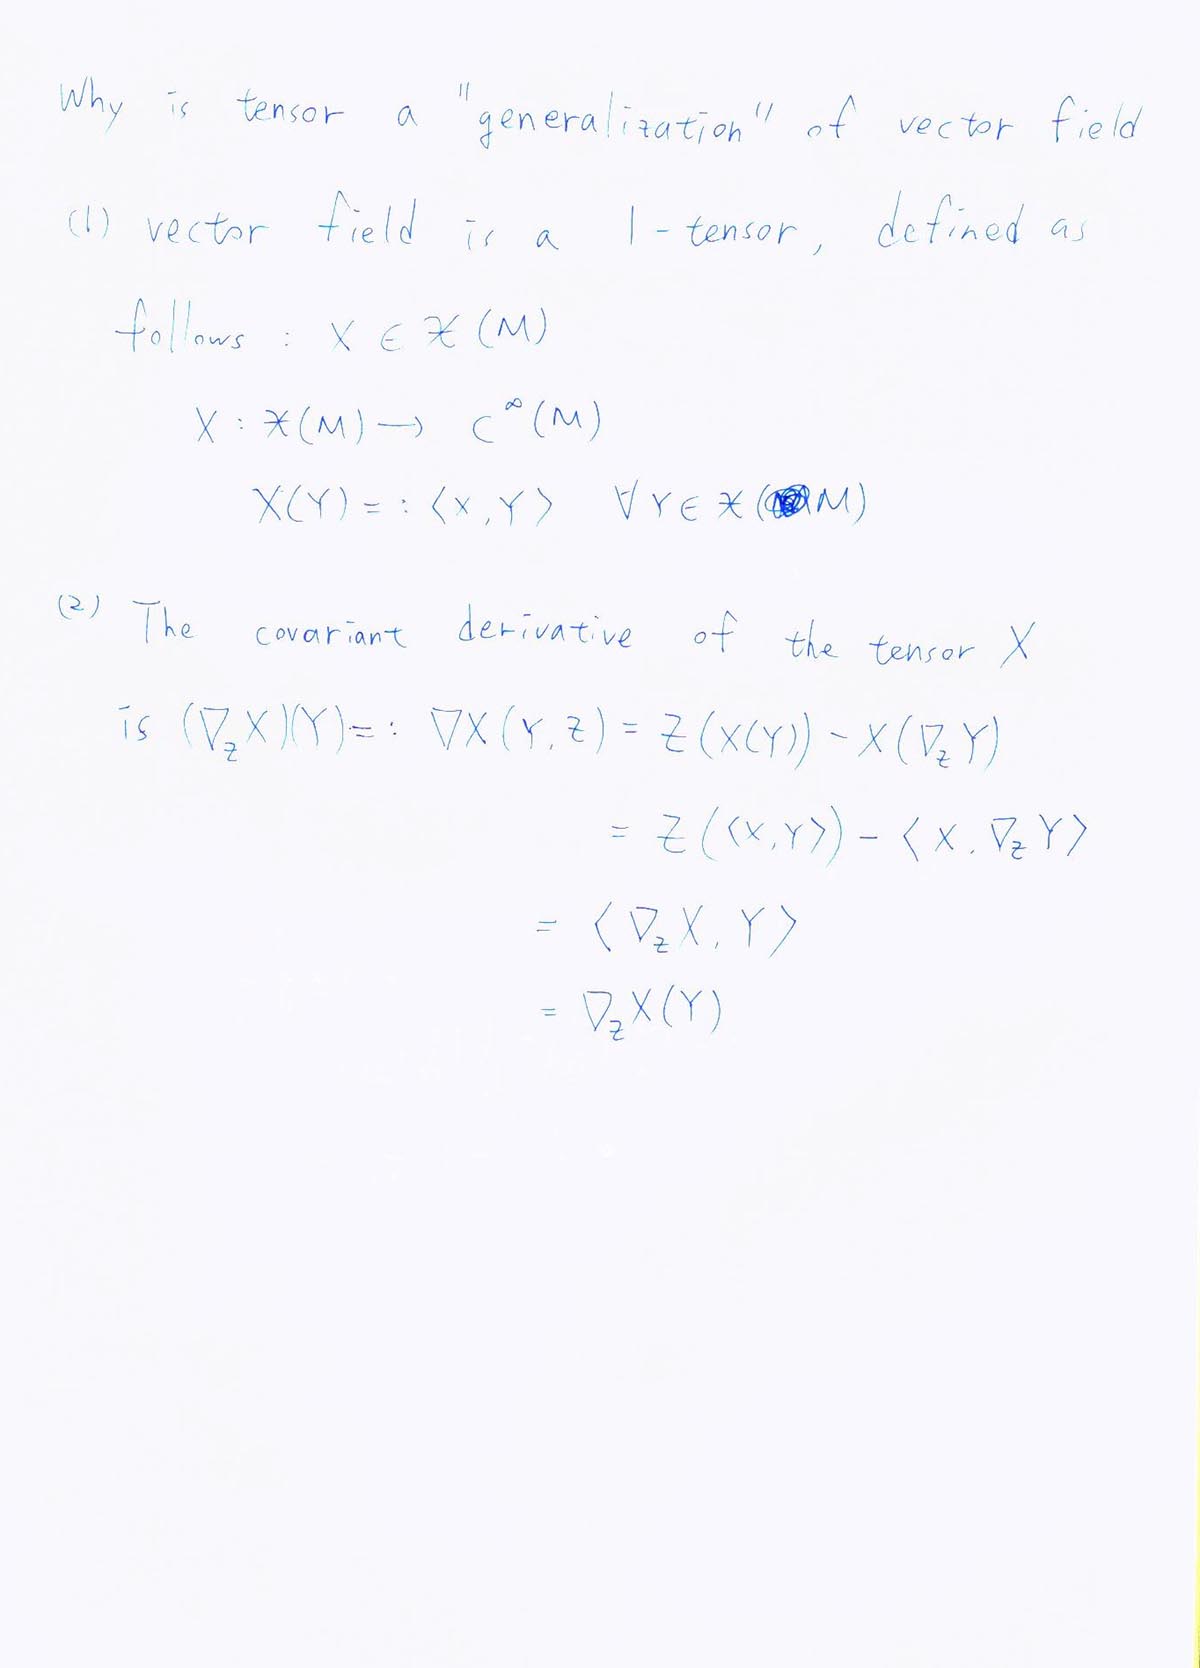 Why is tensor a "generalization" of vector field
(1) vector field is a 1-tensor, defined as
follows : X ∈ 𝒳(M)
X : 𝒳(M) → C^∞(M)
X(Y) =: ⟨X, Y⟩ ∀Y ∈ 𝒳(M)
(2) The covariant derivative of the tensor X
is (∇_Z X)(Y) =: ∇X(Y, Z) = Z(X(Y)) - X(∇_Z Y)
= Z(⟨X, Y⟩) - ⟨X, ∇_Z Y⟩
= ⟨∇_Z X, Y⟩
= ∇_Z X(Y)